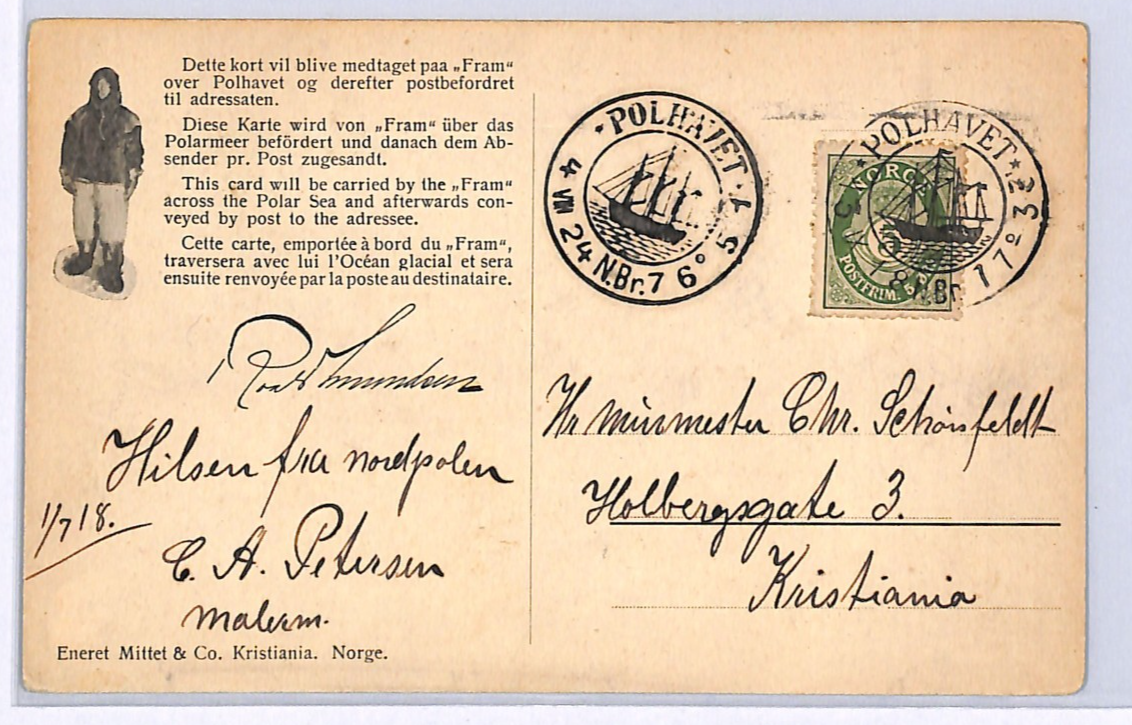 Dette kort vil blive medtaget paa „Fram“
over Polhavet og derefter postbefordret
til adressaten.
Diese Karte wird von „Fram“ über das
Polarmeer befördert und danach dem Ab-
sender pr. Post zugesandt.
This card will be carried by the „Fram“
across the Polar Sea and afterwards con-
veyed by post to the adressee.
Cette carte, emportée à bord du „Fram“,
traversera avec lui l'Océan glacial et sera
ensuite renvoyée par la poste au destinataire.
Roald Amundsen
Hilsen fra nordpolen
1/7 18.
C. A. Petersen
malerm.
Eneret Mittet & Co. Kristiania. Norge.
POLHAVET
4 VII 24 N.Br. 76° 54
POLHAVET
N.Br. 77°
NORGE
POSTFRIM.
Hr murmester Chr. Schönfeldt
Holbergsgate 3.
Kristiania